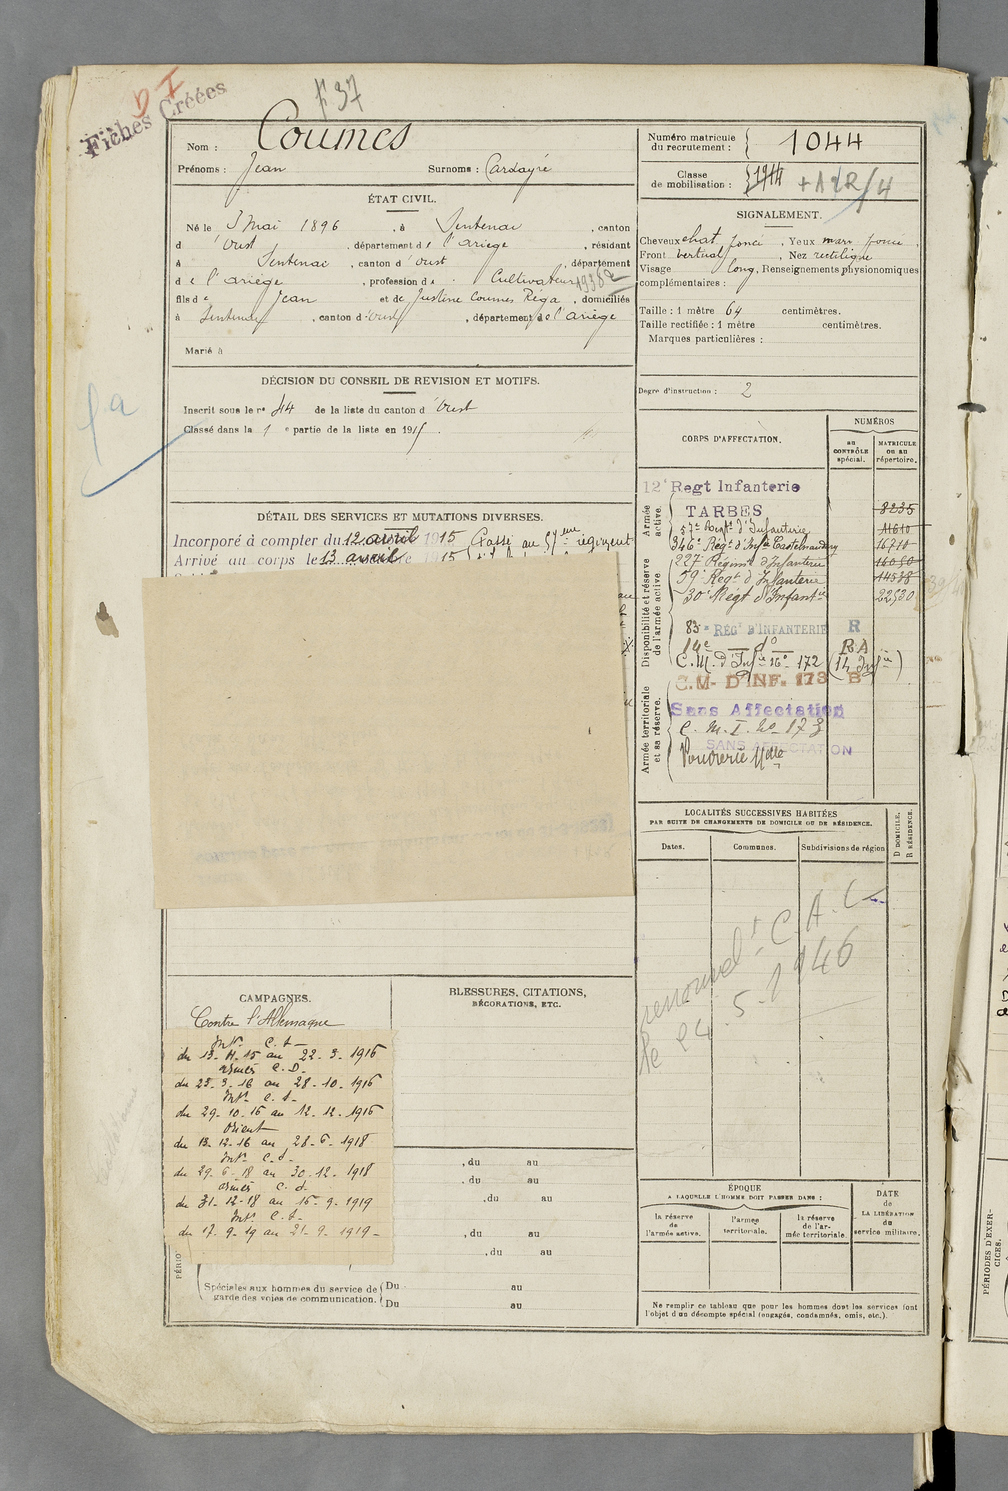 D I
Fiches Créées
F 37
Nom : Coumes
Prénoms : Jean Surnoms : Cardayré
ÉTAT CIVIL.
Né le 3 Mai 1896, à Sentenac, canton
d'Oust, département de l'Ariège, résidant
à Sentenac, canton d'Oust, département
de l'Ariège, profession de Cultivateur
fils de Jean et de Justine Coumes Réga, domiciliés
à Sentenac, canton d'Oust, département de l'Ariège
Marié à
DÉCISION DU CONSEIL DE REVISION ET MOTIFS.
Inscrit sous le nº 44 de la liste du canton d'Oust
Classé dans la 1 e partie de la liste en 1915.
DÉTAIL DES SERVICES ET MUTATIONS DIVERSES.
Incorporé à compter du 12 avril 1915 Passé au 57eme régiment
Arrivé au corps le 13 avril 15
CAMPAGNES.
Contre l'Allemagne
Intr. C.S-
du 13-4-15 au 22-3-1916
armés C.D-
du 23-3-16 au 28-10-1916
Intr. C.S-
du 29-10-16 au 12-12-1916
Orient
du 13-12-16 au 28-6-1918
Intr. C.S-
du 29-6-18 au 30-12-1918
armés C.S-
du 31-12-18 au 16-9-1919
Intr. C.S-
du 17-9-19 au 21-9-1919-
BLESSURES, CITATIONS,
DÉCORATIONS, ETC.
, du au
, du au
, du au
, du au
, du au
PÉRIO
Spéciales aux hommes du service de
garde des voies de communication.
Du au
Du au
Numéro matricule
du recrutement : 1044
Classe
de mobilisation : 1914
SIGNALEMENT.
Cheveux chat. foncé, Yeux marr. foncé
Front vertical, Nez rectiligne
Visage long, Renseignements physionomiques
complémentaires :
Taille : 1 mètre 64 centimètres.
Taille rectifiée : 1 mètre centimètres.
Marques particulières :
Degré d'instruction : 2
CORPS D'AFFECTATION.
NUMÉROS
au
CONTRÔLE
spécial.
MATRICULE
ou au
répertoire.
Armée
active.
12e Regt Infanterie
TARBES 8235
57e Régt d'Infanterie 11610
346e Régt d'Infie Castelnaudary 16710
Disponibilité et réserve
de l'armée active.
227e Régimt d'Infanterie 16050
59e Regt d'Infanterie 14538
30e Regt d'Infantie 22530
83e RÉGt D'INFANTERIE R
14e dº R.A
C.M. d'Infie nº 172 (14 Infie)
Armée territoriale
et sa réserve.
C.M- D'INF. 173 B
Sans Affectation
C.M.I. nº 173
SANS AFFECTATION
Poudrerie Nale
LOCALITÉS SUCCESSIVES HABITÉES
PAR SUITE DE CHANGEMENTS DE DOMICILE OU DE RÉSIDENCE.
Dates. Communes. Subdivisions de région
D DOMICILE.
R RÉSIDENCE.
renouvelt C.A.C
le 24.5.1946
ÉPOQUE
A LAQUELLE L'HOMME DOIT PASSER DANS :
la réserve
de
l'armée active.
l'armée
territoriale.
la réserve
de l'ar-
mée territoriale.
DATE
de
LA LIBÉRATION
du
service militaire.
Ne remplir ce tableau que pour les hommes dont les services font
l'objet d'un décompte spécial (engagés, condamnés, omis, etc.).
PÉRIODES D'EXER-
CICES.